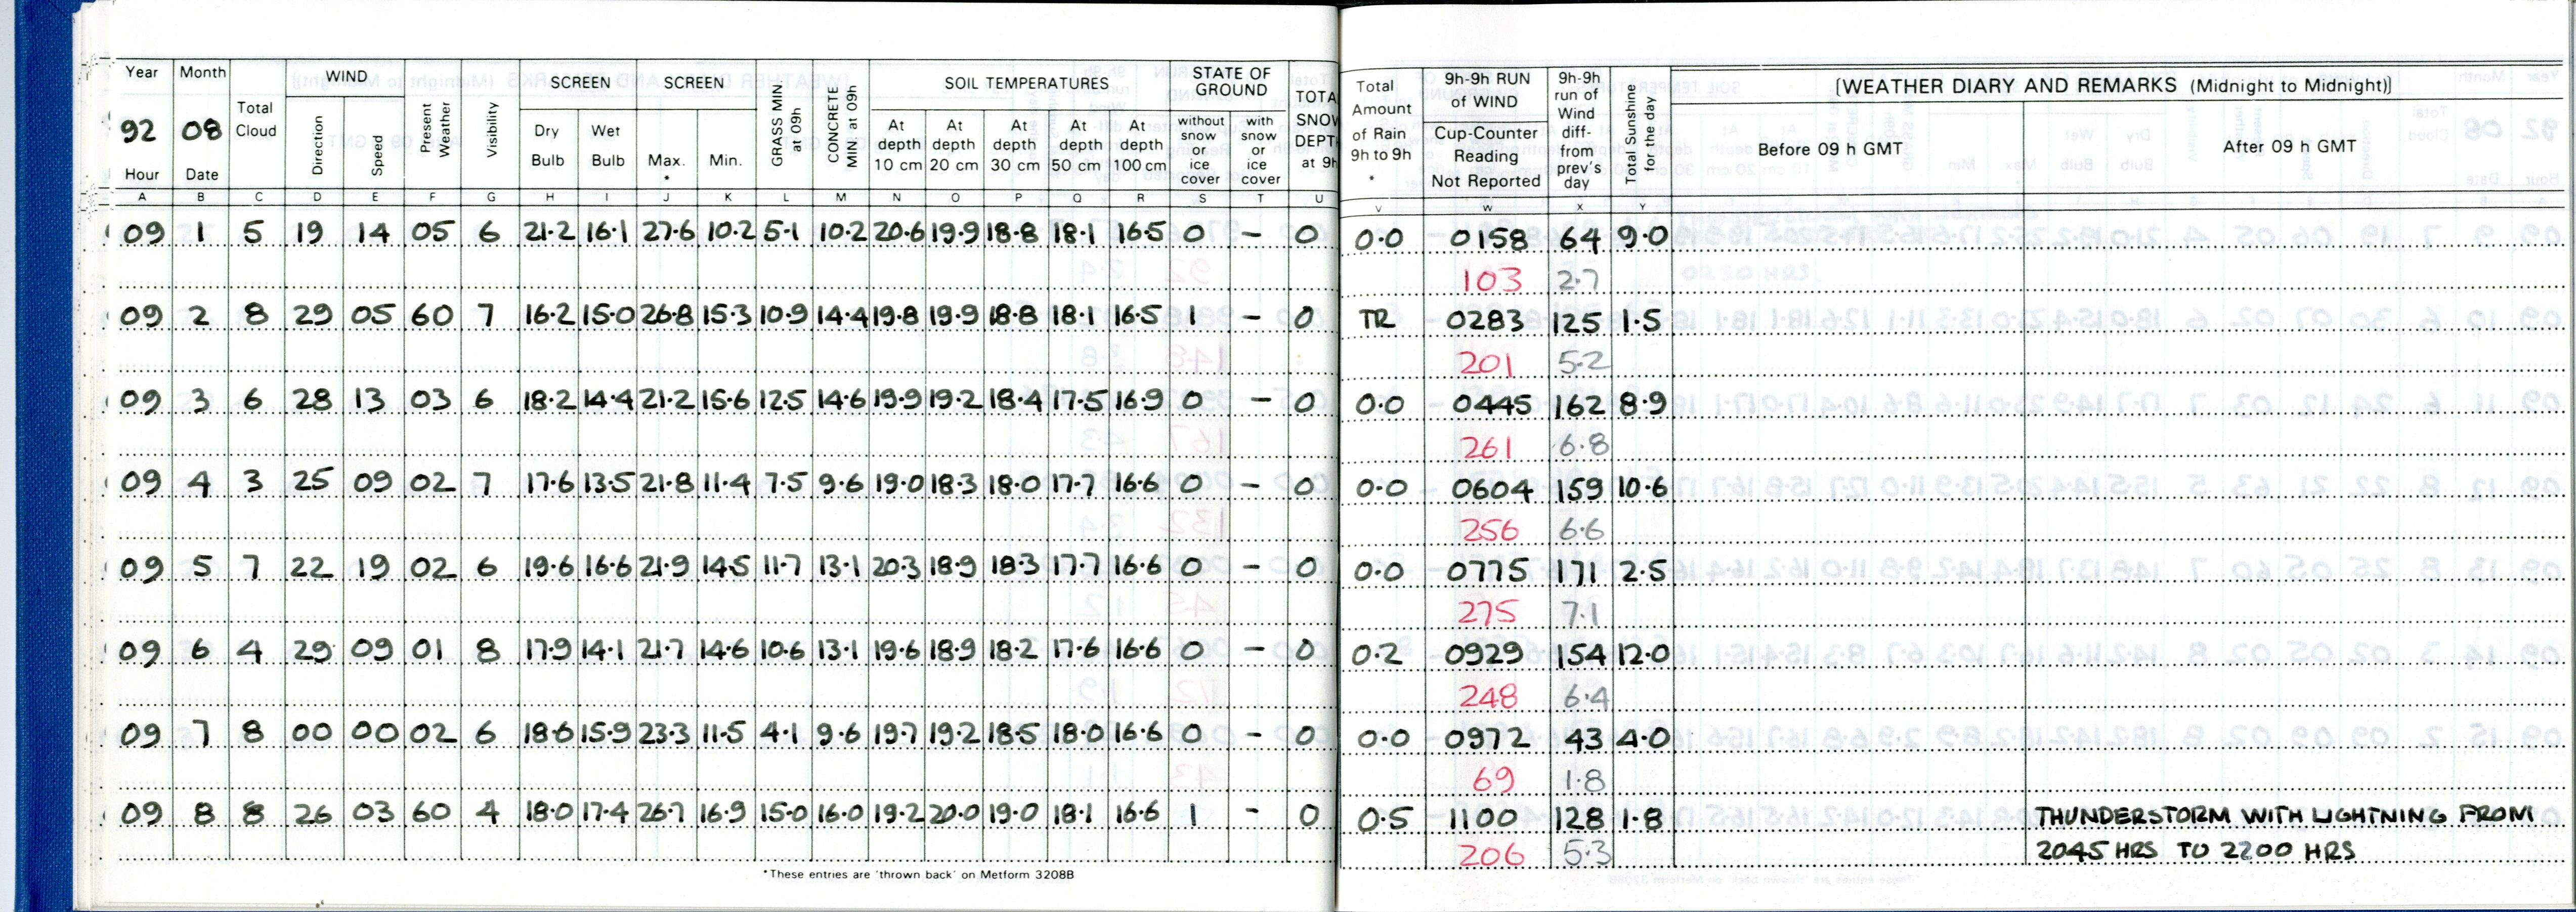 Year Month Total Cloud WIND Present Weather Visibility SCREEN SCREEN GRASS MIN. at 09h CONCRETE MIN. at 09h SOIL TEMPERATURES STATE OF GROUND TOTA SNOW DEPT at 9h Total Amount of Rain 9h to 9h * 9h-9h RUN of WIND 9h-9h run of Wind diff- from prev's day Total Sunshine for the day [WEATHER DIARY AND REMARKS (Midnight to Midnight)]
92 08 Direction Speed Dry Bulb Wet Bulb Max. * Min. At depth 10 cm At depth 20 cm At depth 30 cm At depth 50 cm At depth 100 cm without snow or ice cover with snow or ice cover Cup-Counter Reading Not Reported Before 09 h GMT After 09 h GMT
Hour Date
A B C D E F G H I J K L M N O P Q R S T U V W X Y
09 1 5 19 14 05 6 21.2 16.1 27.6 10.2 5.1 10.2 20.6 19.9 18.8 18.1 16.5 0 – 0 0.0 0158 64 9.0
103 2.7
09 2 8 29 05 60 7 16.2 15.0 26.8 15.3 10.9 14.4 19.8 19.9 18.8 18.1 16.5 1 – 0 TR 0283 125 1.5
201 5.2
09 3 6 28 13 03 6 18.2 14.4 21.2 15.6 12.5 14.6 19.9 19.2 18.4 17.5 16.9 0 – 0 0.0 0445 162 8.9
261 6.8
09 4 3 25 09 02 7 17.6 13.5 21.8 11.4 7.5 9.6 19.0 18.3 18.0 17.7 16.6 0 – 0 0.0 0604 159 10.6
256 6.6
09 5 7 22 19 02 6 19.6 16.6 21.9 14.5 11.7 13.1 20.3 18.9 18.3 17.7 16.6 0 – 0 0.0 0775 171 2.5
275 7.1
09 6 4 29 09 01 8 17.9 14.1 21.7 14.6 10.6 13.1 19.6 18.9 18.2 17.6 16.6 0 – 0 0.2 0929 154 12.0
248 6.4
09 7 8 00 00 02 6 18.6 15.9 23.3 11.5 4.1 9.6 19.7 19.2 18.5 18.0 16.6 0 – 0 0.0 0972 43 4.0
69 1.8
09 8 8 26 03 60 4 18.0 17.4 26.7 16.9 15.0 16.0 19.2 20.0 19.0 18.1 16.6 1 – 0 0.5 1100 128 1.8 THUNDERSTORM WITH LIGHTNING FROM
206 5.3 2045 HRS TO 2200 HRS
*These entries are 'thrown back' on Metform 3208B